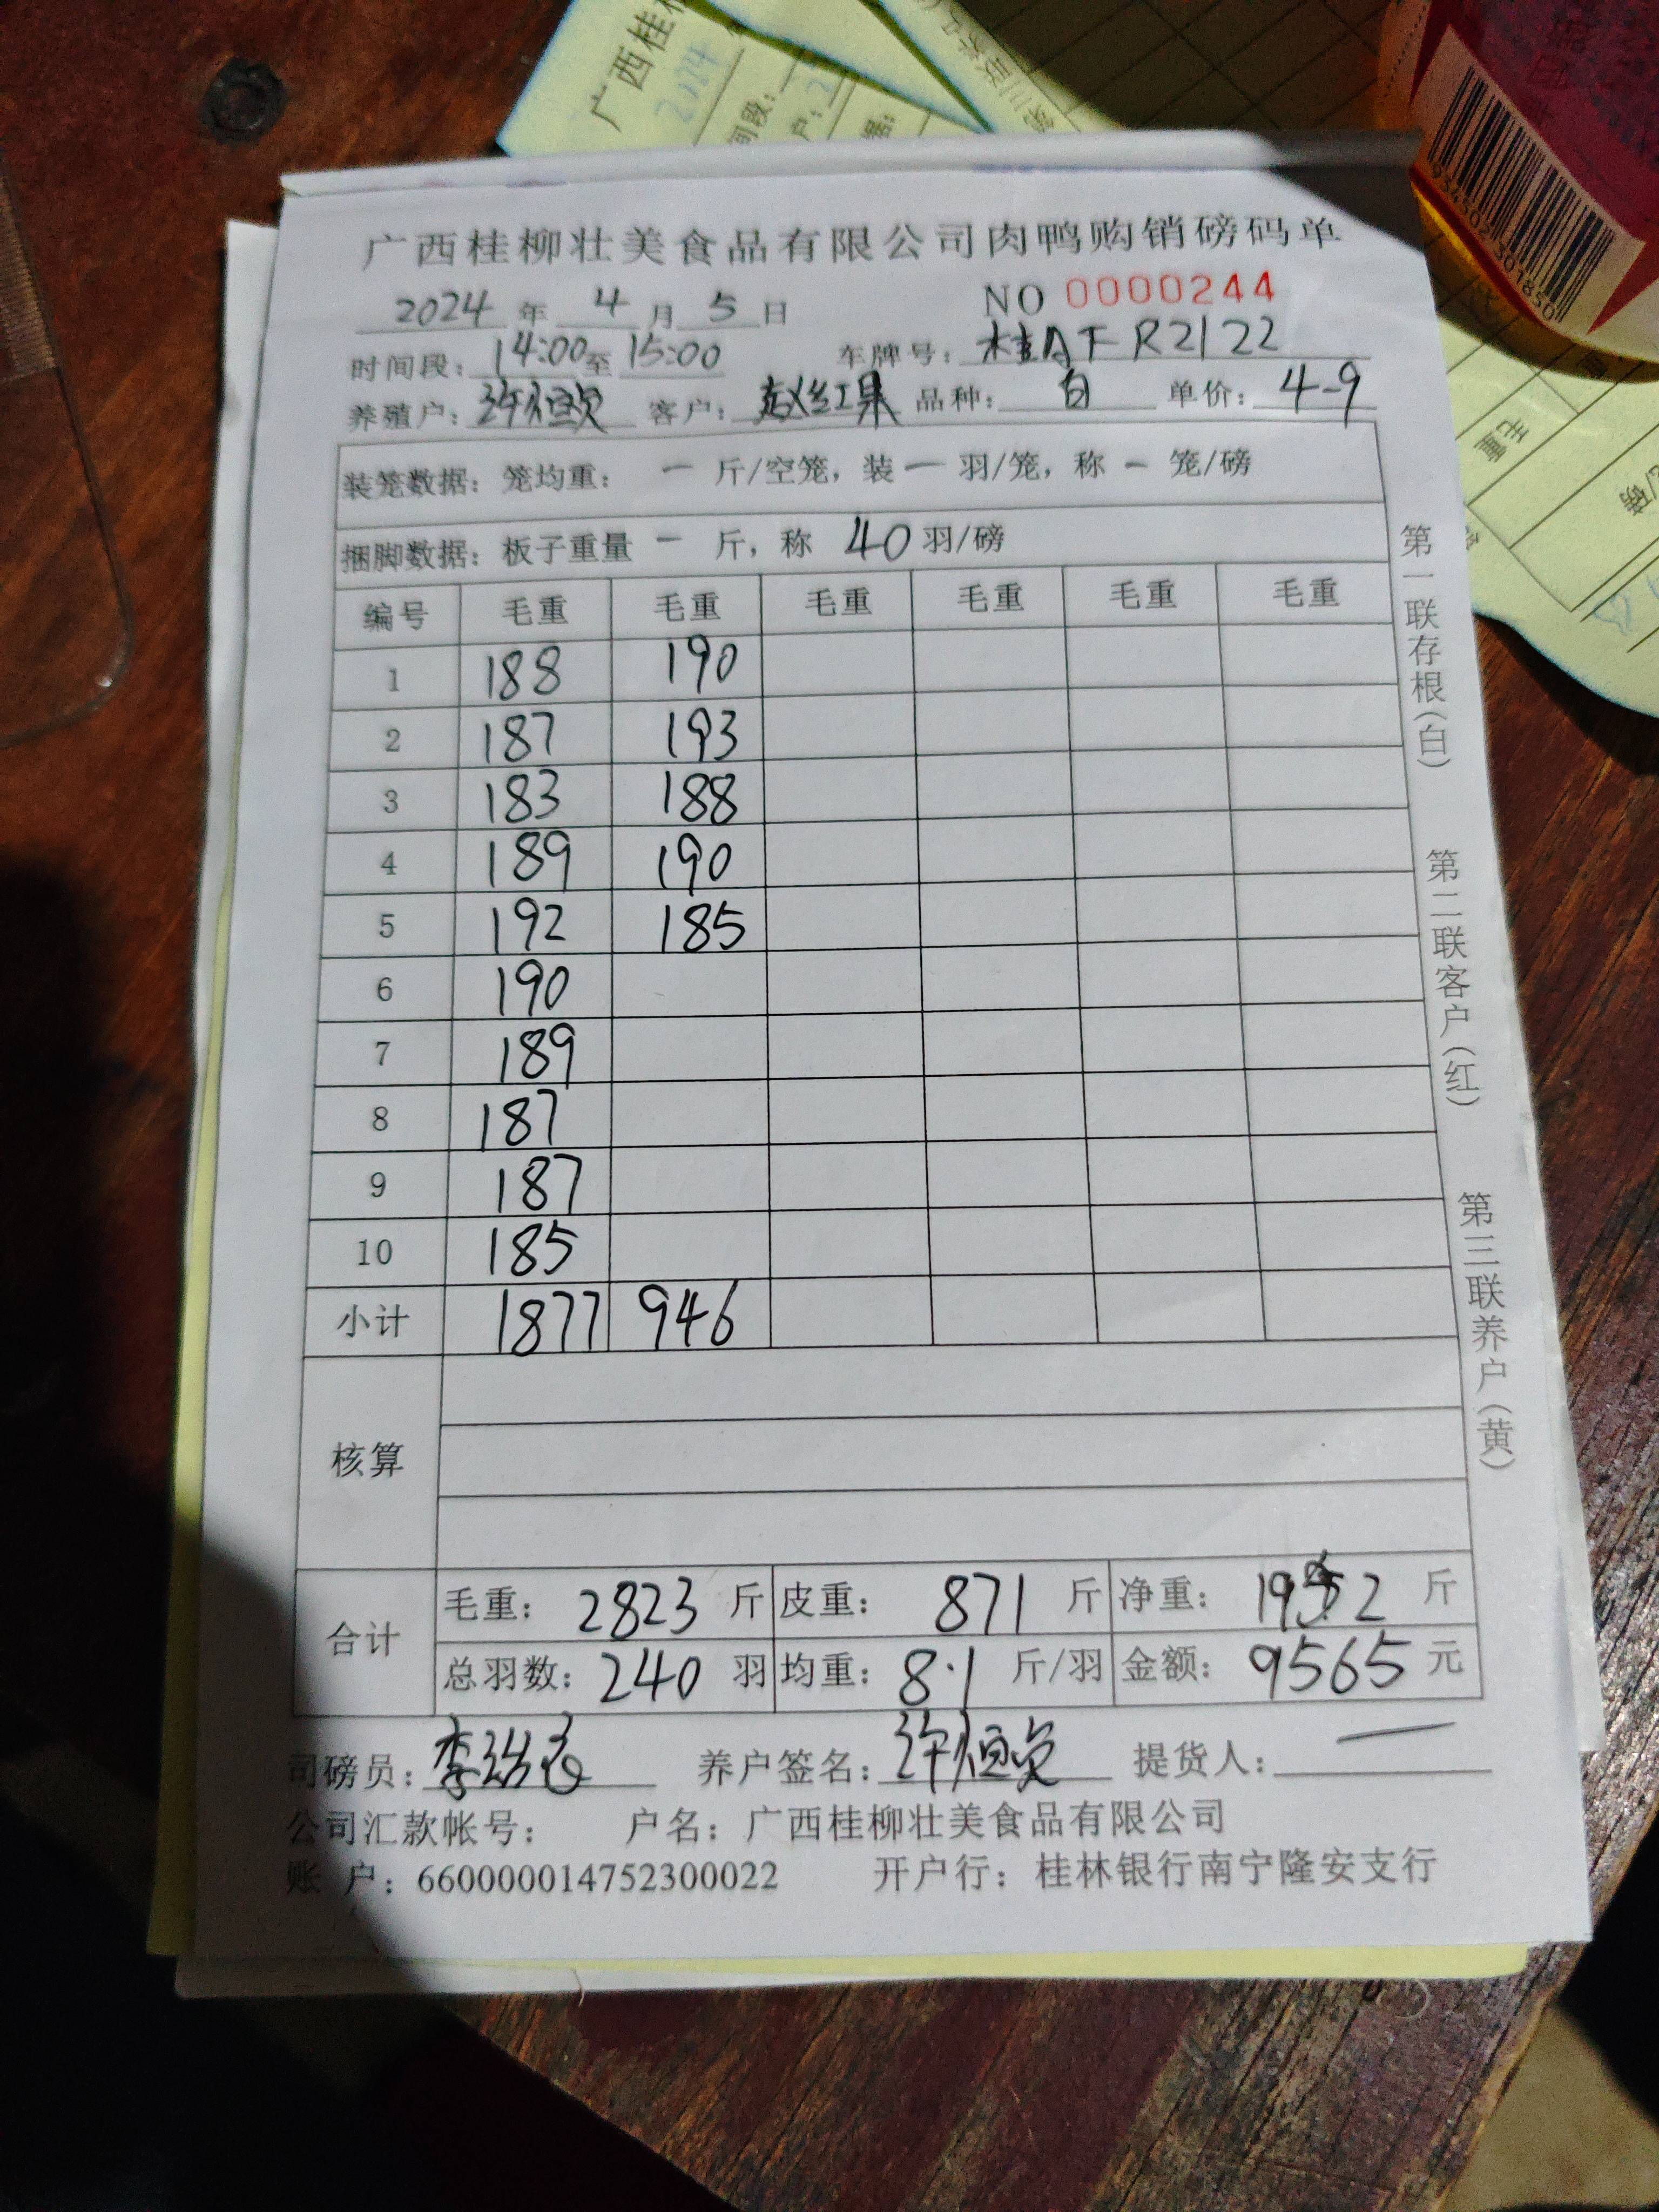 广西桂
2024
间段:
户: 2
广西桂柳壮美食品有限公司肉鸭购销磅码单
2024 年 4 月 5 日 NO 0000244
时间段: 14:00 至 15:00 车牌号: 桂AFR2122
养殖户: 许恒 客户: 赵红果 品种: 白 单价: 4-9
装笼数据: 笼均重: 一 斤/空笼, 装 一 羽/笼, 称 一 笼/磅
捆脚数据: 板子重量 一 斤, 称 40 羽/磅
编号 毛重 毛重 毛重 毛重 毛重 毛重
1 188 190
2 187 193
3 183 188
4 189 190
5 192 185
6 190
7 189
8 187
9 187
10 185
小计 1877 946
核算
合计 毛重: 2823 斤 皮重: 871 斤 净重: 1952 斤
总羽数: 240 羽 均重: 8.1 斤/羽 金额: 9565 元
司磅员: 李 养户签名: 许恒 提货人: 一
公司汇款帐号: 户名: 广西桂柳壮美食品有限公司
账 户: 660000014752300022 开户行: 桂林银行南宁隆安支行
第一联存根(白) 第二联客户(红) 第三联养户(黄)
毛重